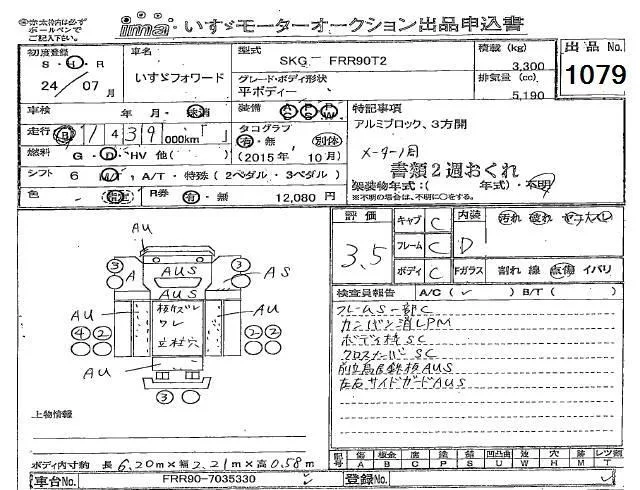 赤太枠内は必ず
ボールペンで
ご記入下さい。
ima いすゞモーターオークション出品申込書
初度登録
S・H・R
24/07月
車名
いすゞフォワード
型式
SKG- FRR90T2
グレード・ボディ形状
平ボディー
積載 (kg)
3,300
排気量 (cc)
5,190
出品 No.
1079
車検 年 月・抹消
装備 AC PS PW
走行 1 4 3 9 000km
タコグラフ
有・無 別体
(2015年 10月)
燃料 G・D・HV 他( )
シフト 6 M/T, A/T・特殊(2ペダル・3ペダル)
色 指定
R券 有・無 12,080 円
特記事項
アルミブロック、3方開
メーター1周
書類2週おくれ
架装物年式:( 年式)・不明
※不明の場合は、不明に○をする。
評価
3.5
キャブ C
フレーム C
ボディ C
内装 汚れ 破れ ヤニ・スレ
D
Fガラス 割れ 線 点傷 イバリ
検査員報告 A/C( ✓ ) B/T( )
フレームS一部C
カンバン消しPM
ボディ枠SC
クロスメーバSC
前立鳥居鉄板AUS
左右サイドガードAUS
AU
③ A AUS ③ AS
AUS
AU 板ガズレ AU
ワレ
④② 立柱穴 ②②
AU
③
上物情報
ボディ内寸約 長 6.20m×幅 2.21m×高 0.58m
記号 傷 A 板金 B 腐 C 塗 P 錆 S 凹凸曲 U 蝕 W 穴 H 無 M レツ割 T
車台No. FRR90-7035330
登録No.